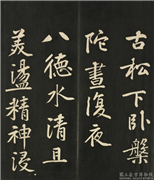 古松下卧槃
陀晝復夜
八德水清且
美盪精神浸